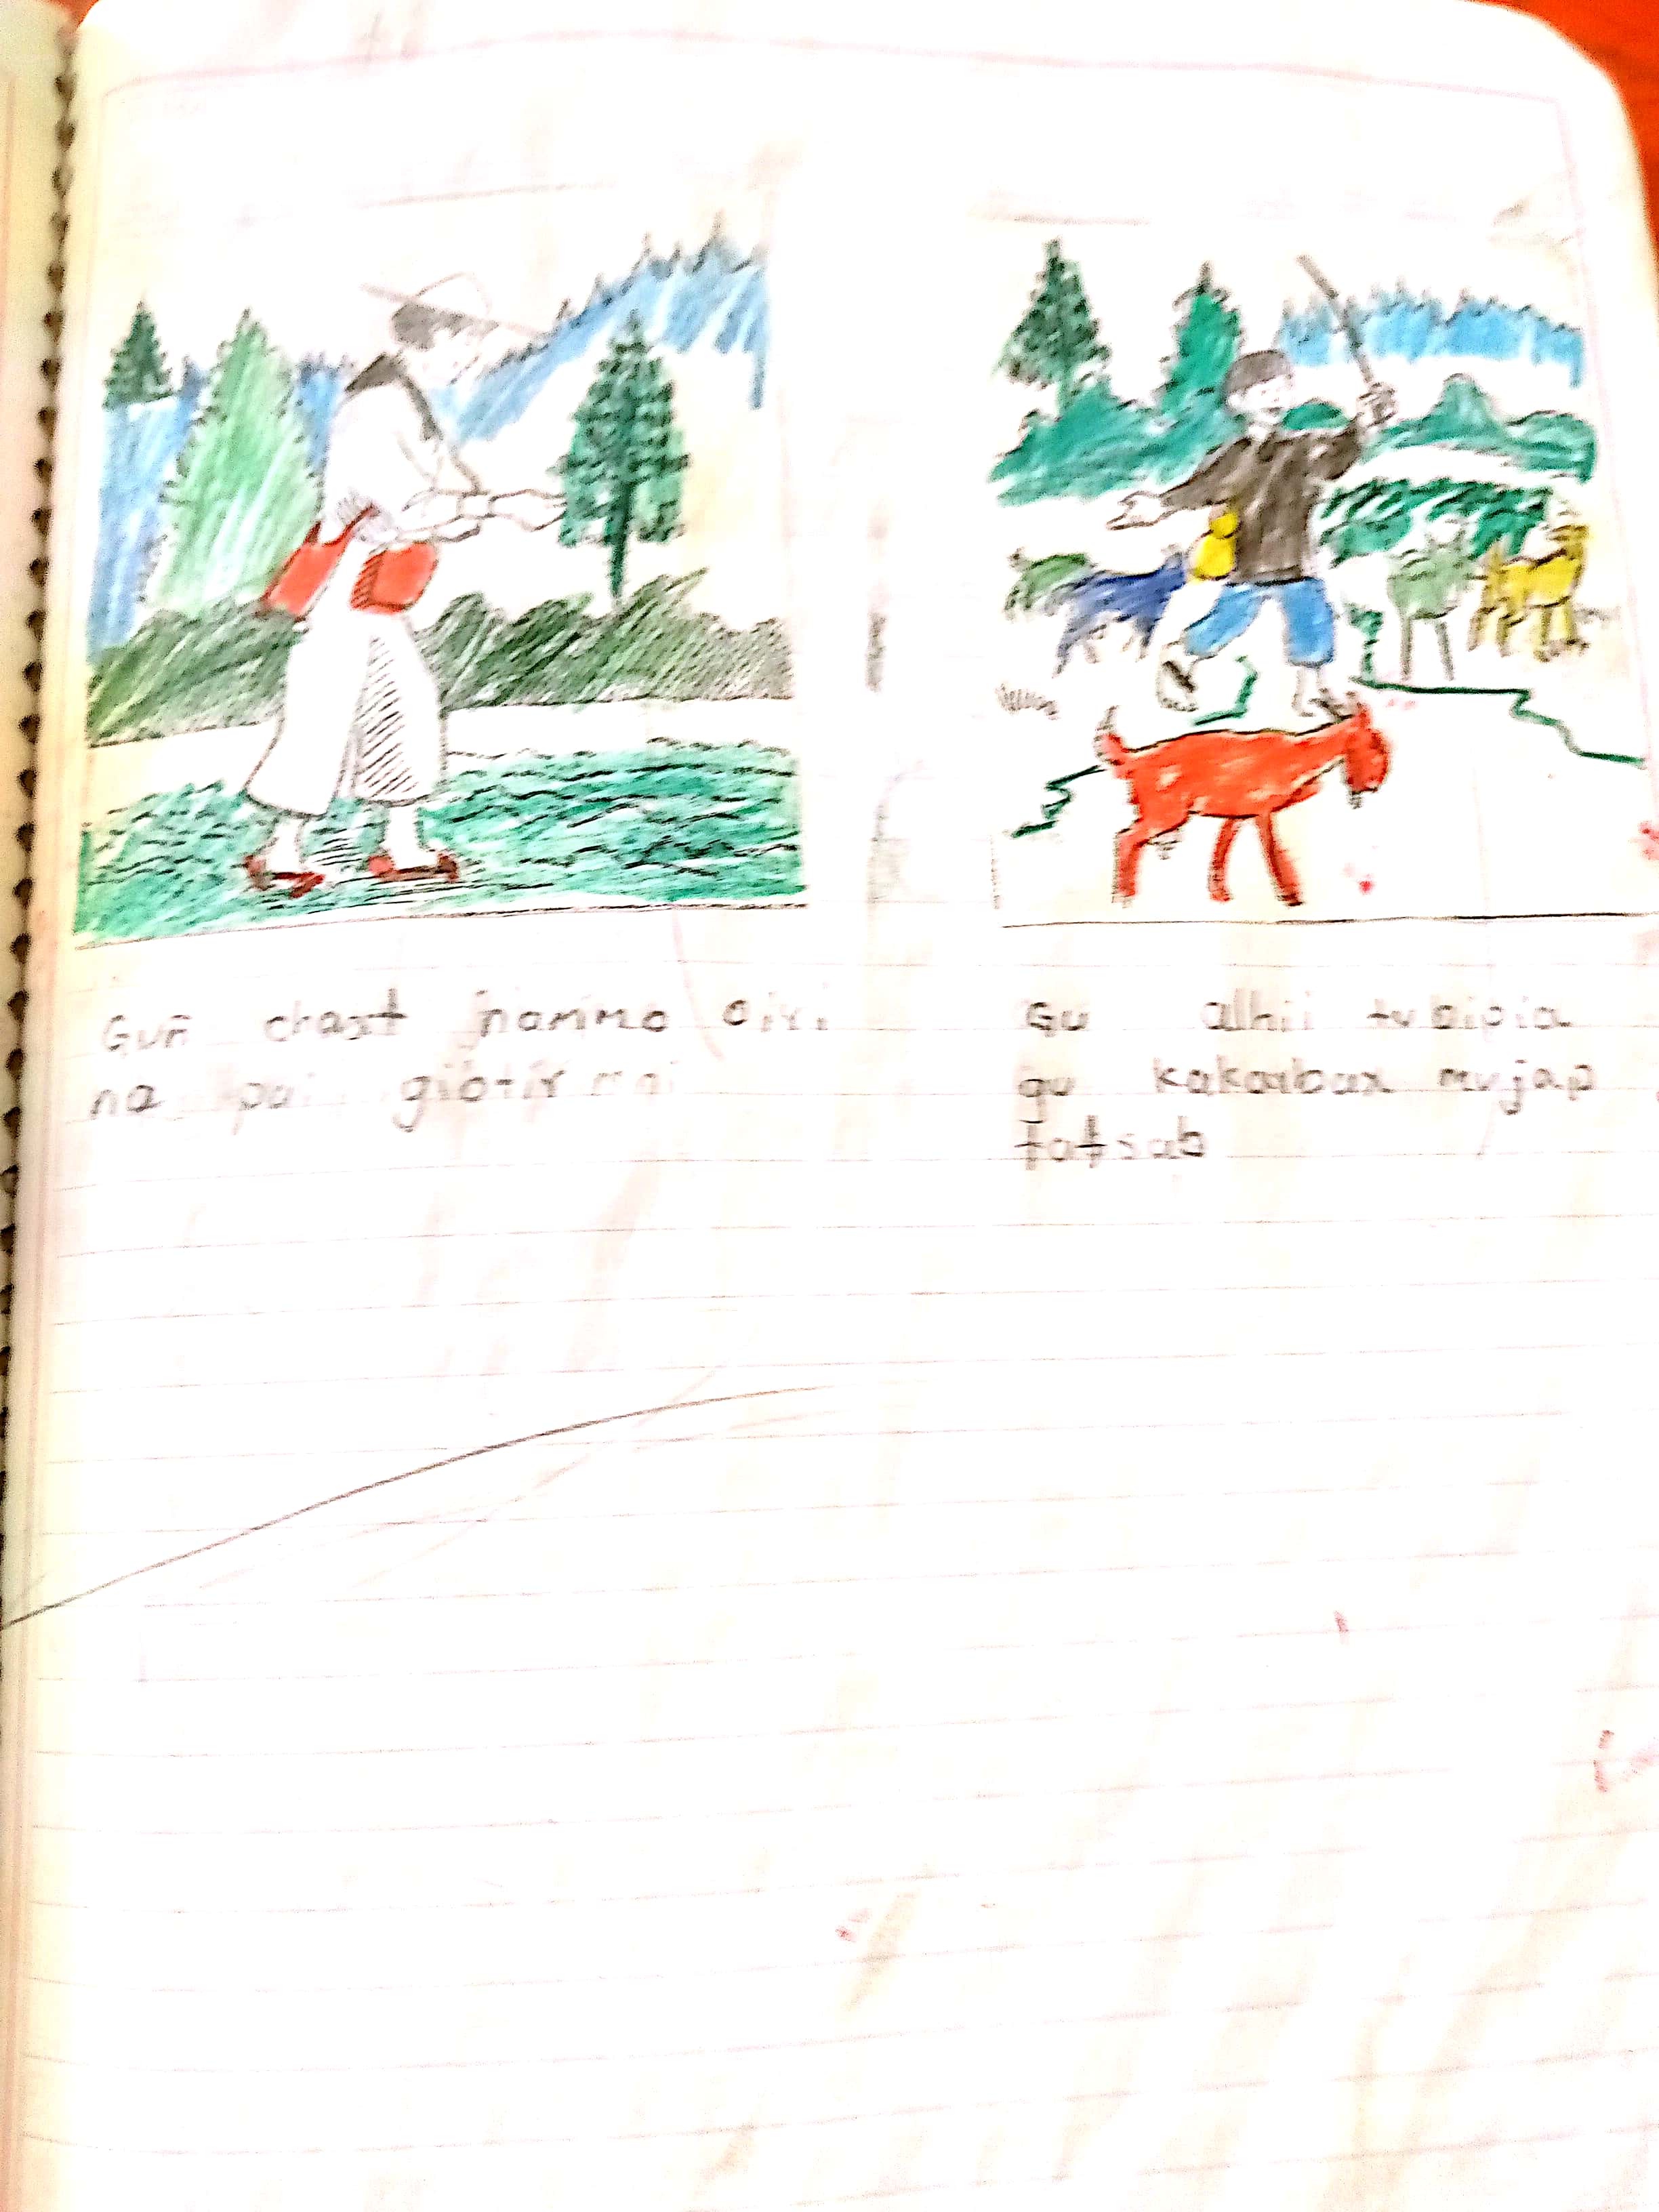 Guñ chast jnammo oiri
na pui giotir
Gu alhii tusipia
gu kakarbax mujap
totsab